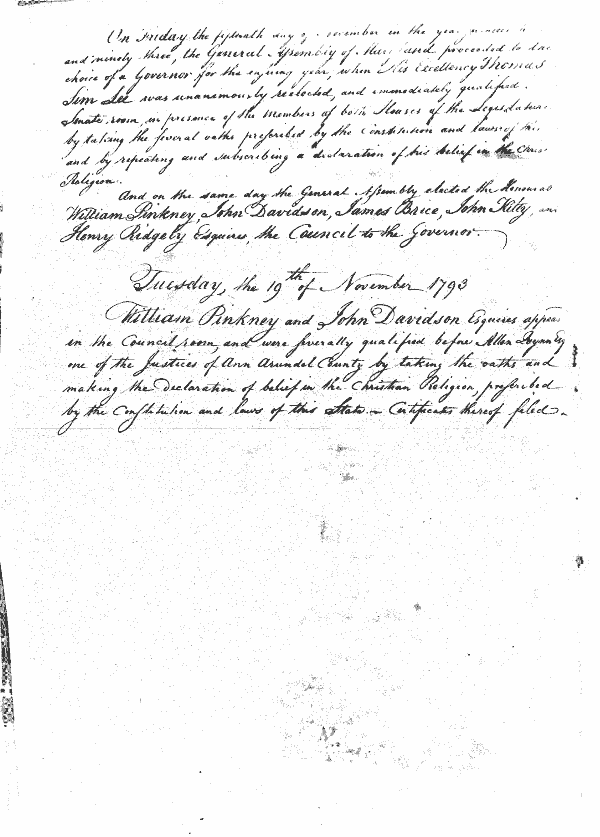 On Friday the fifteenth day of November in the year
and ninety three, the General Assembly of Maryland proceeded to the
choice of a Governor for the ensuing year, when His Excellency Thomas
Sim Lee was unanimously reelected, and immediately qualified.
Senate room, in presence of the Members of both Houses of the Legislature
by taking the several oaths prescribed by the Constitution and laws of this
and by repeating and subscribing a declaration of his belief in the Chris
Religion.
And on the same day the General Assembly elected the Honorab
William Pinkney, John Davidson, James Brice, John Kilty, an
Henry Ridgely Esquires, the Council to the Governor.
Tuesday, the 19th of November 1793
William Pinkney and John Davidson Esquires appear
in the Council room, and were severally qualified before Allen Quynn Esq
one of the Justices of Ann Arundel County by taking the oaths and
making the Declaration of belief in the Christian Religion, prescribed
by the Constitution and laws of this State. Certificates thereof filed.